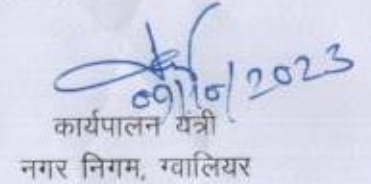 09/10/2023
कार्यपालन यंत्री
नगर निगम, ग्वालियर